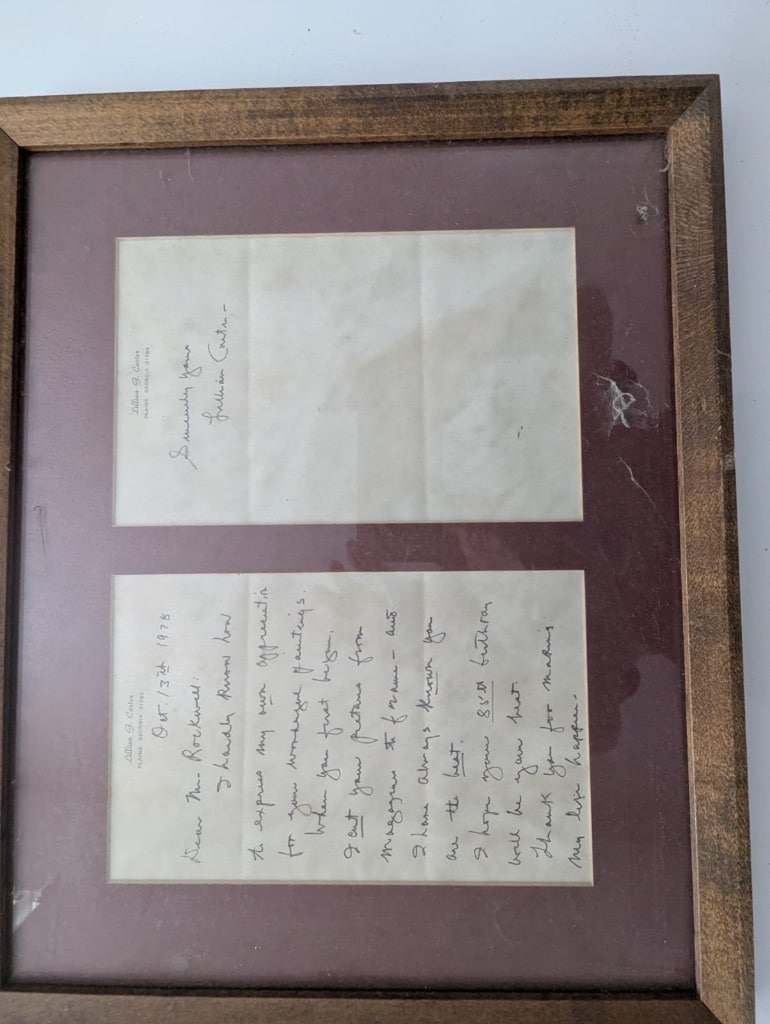 Lillian G. Carter
PLAINS, GEORGIA 31780
Oct. 13th 1978
Dear Mr. Rockwell:
I hardly know how
to express my own appreciation
for your wonderful paintings.
When you first began.
I cut your pictures from
magazines to frame - and
I have always known you
are the best.
I hope your 85th birthday
will be your best.
Thank you for making
my life happier.
Lillian G. Carter
PLAINS, GEORGIA 31780
Sincerely yours
Lillian Carter -